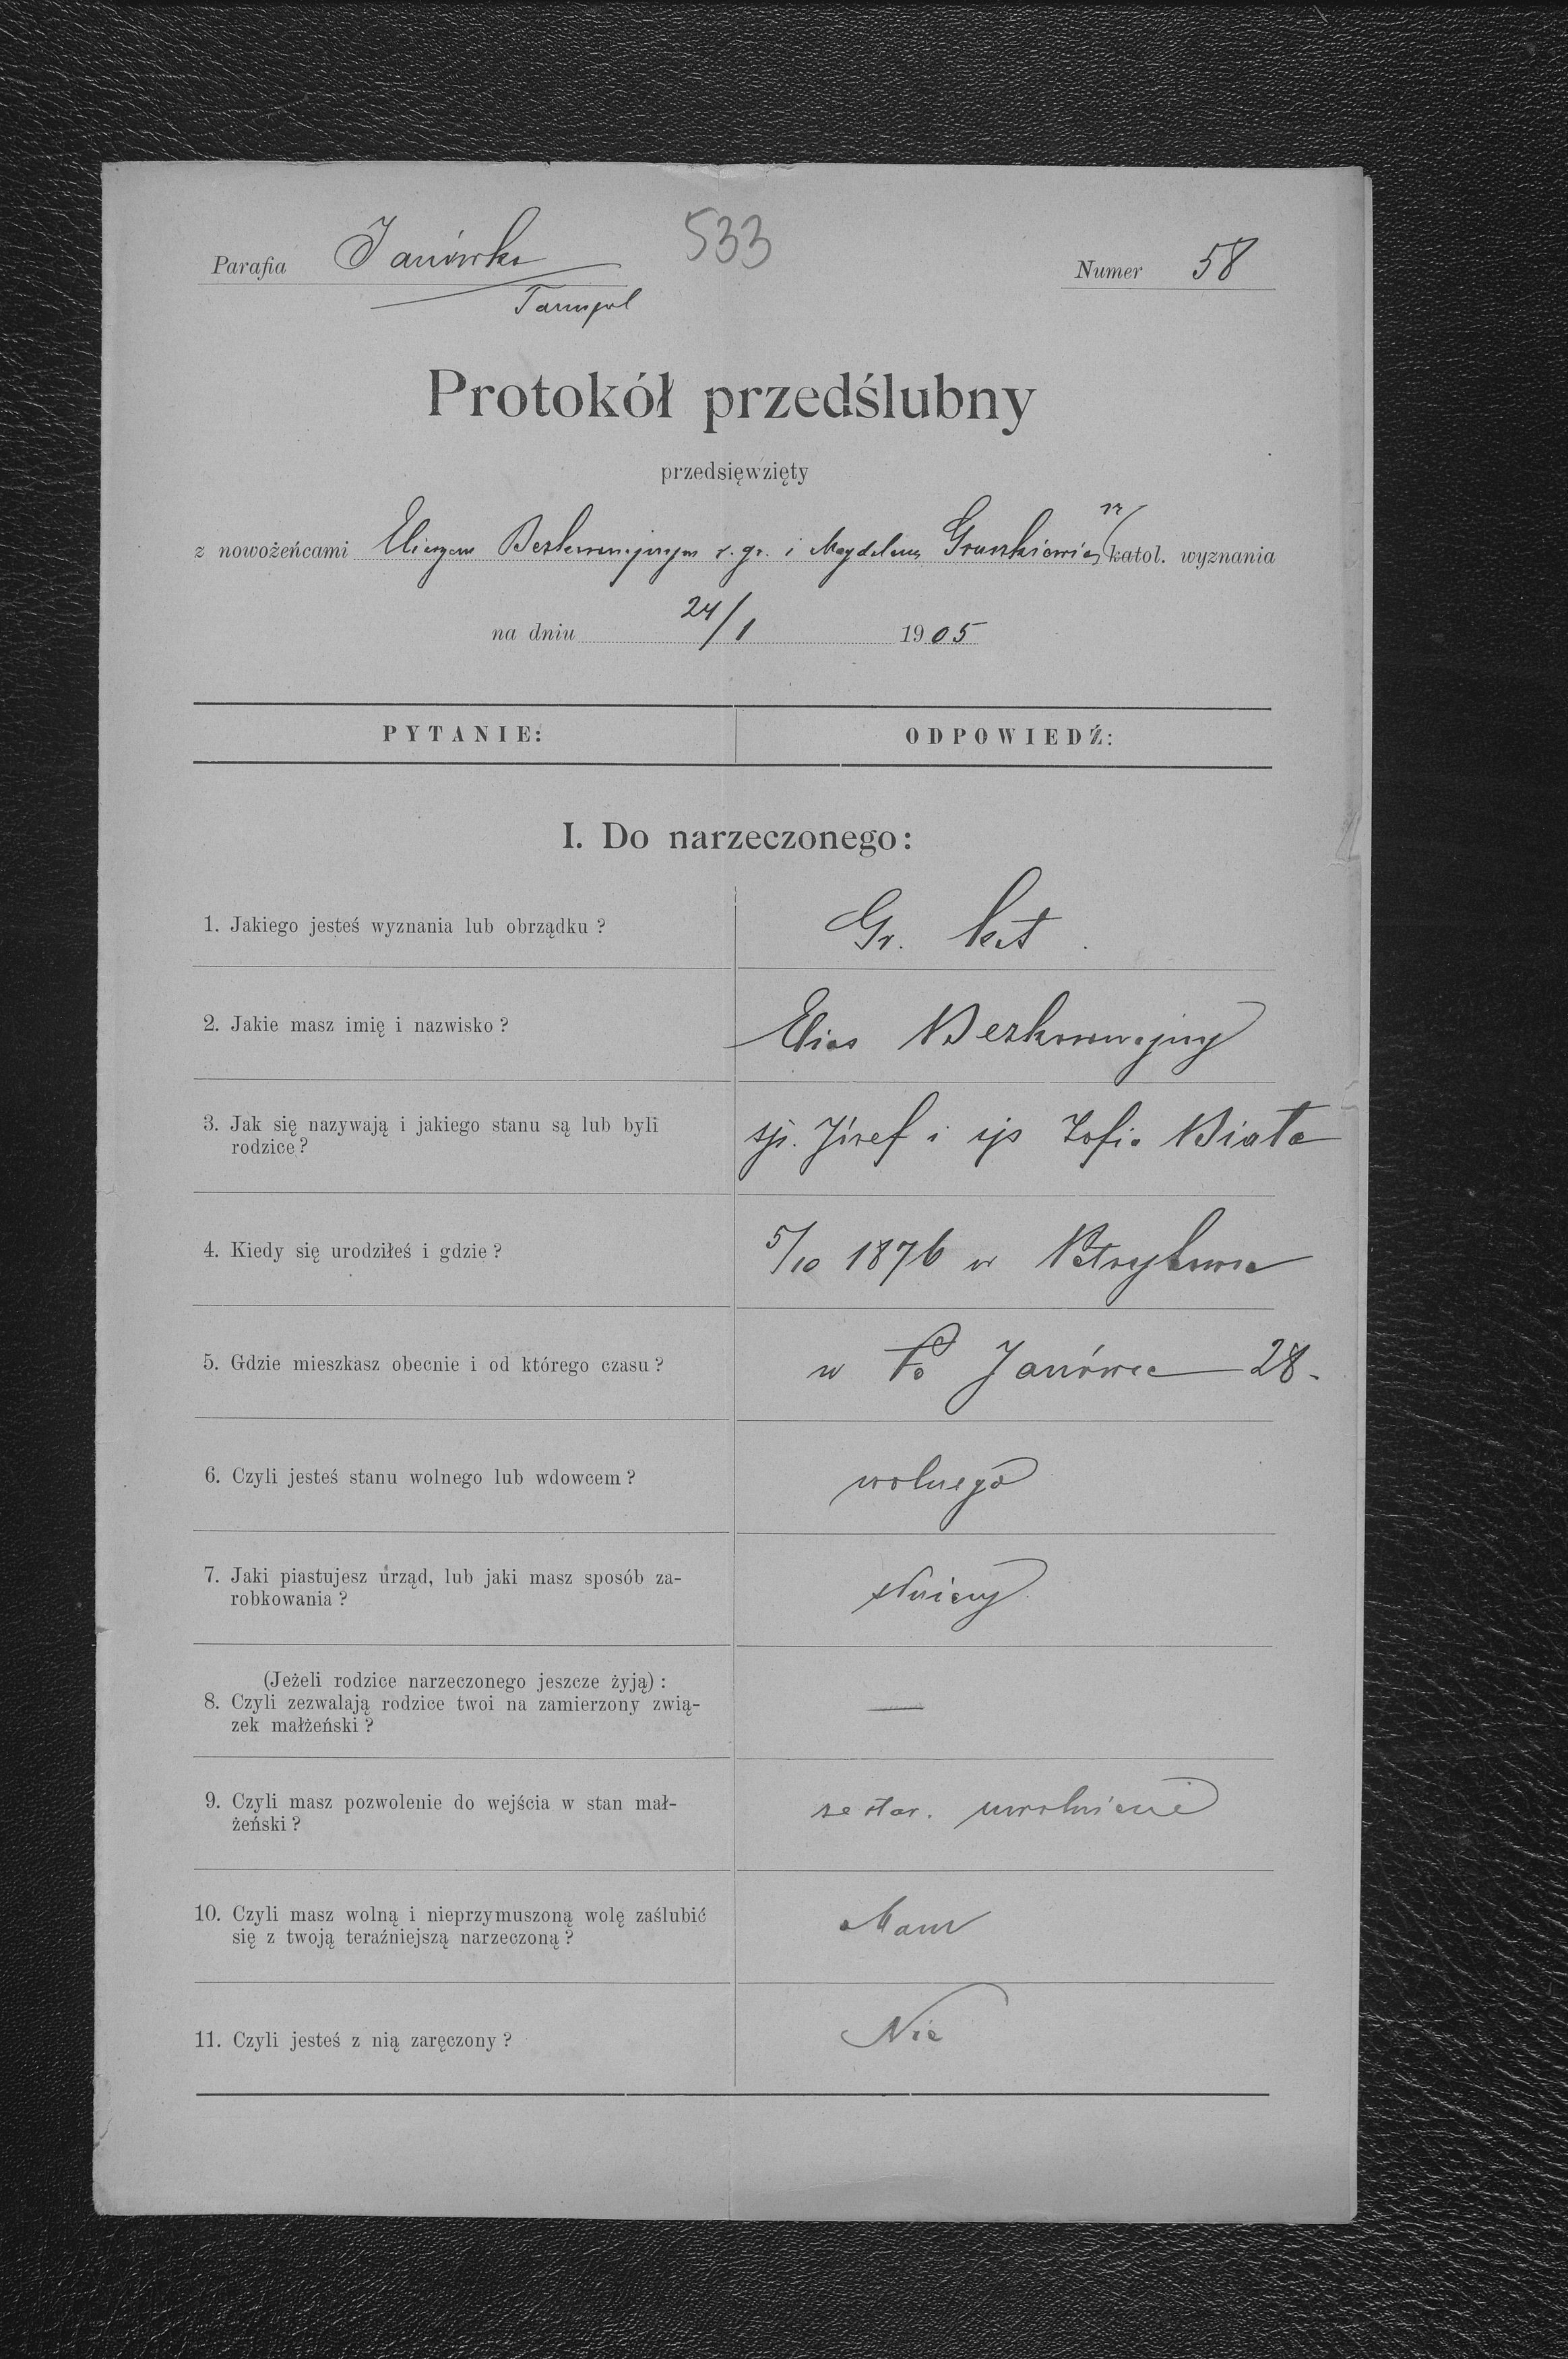 Parafia Janówka 533 Numer 58
Tarnopol
Protokół przedślubny
przedsięwzięty
z nowożeńcami Eliaszem r. gr. i Magdaleną Gruszkiewicz katol. wyznania
na dniu 24/1 1905
PYTANIE: ODPOWIEDŹ:
I. Do narzeczonego:
1. Jakiego jesteś wyznania lub obrządku? Gr. kat.
2. Jakie masz imię i nazwisko? Elias
3. Jak się nazywają i jakiego stanu są lub byli
rodzice? śp. Józef i śp Zofia Biała
4. Kiedy się urodziłeś i gdzie? 5/10 1876 w
5. Gdzie mieszkasz obecnie i od którego czasu? w Janówce 28.
6. Czyli jesteś stanu wolnego lub wdowcem? wolnego
7. Jaki piastujesz urząd, lub jaki masz sposób za-
robkowania? służący
(Jeżeli rodzice narzeczonego jeszcze żyją):
8. Czyli zezwalają rodzice twoi na zamierzony zwią-
zek małżeński? —
9. Czyli masz pozwolenie do wejścia w stan mał-
żeński? uwolnienie
10. Czyli masz wolną i nieprzymuszoną wolę zaślubić
się z twoją teraźniejszą narzeczoną? Mam
11. Czyli jesteś z nią zaręczony? Nie